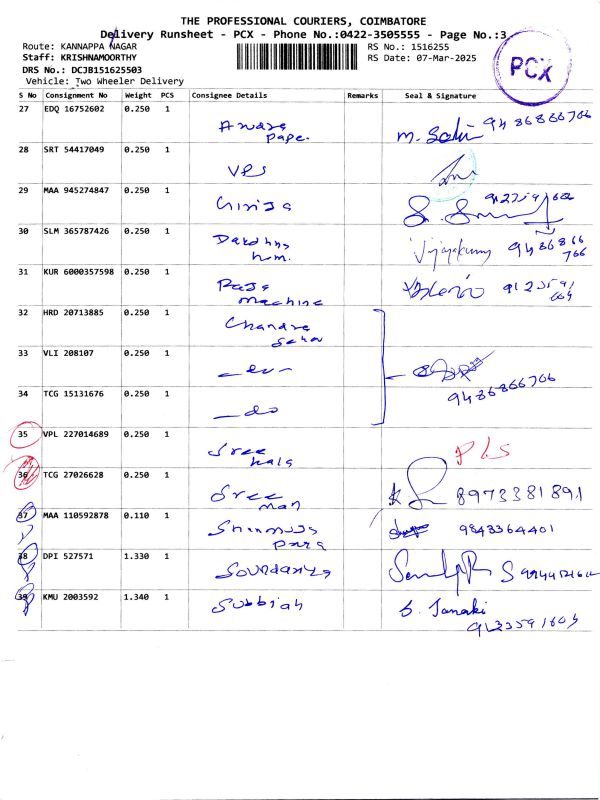 THE PROFESSIONAL COURIERS, COIMBATORE
Delivery Runsheet - PCX - Phone No.:0422-3505555 - Page No.:3
Route: KANNAPPA NAGAR
RS No.: 1516255
Staff: KRISHNAMOORTHY
RS Date: 07-Mar-2025
DRS No.: DCJB151625503
Vehicle: Two Wheeler Delivery
PCX
S No Consignment No Weight PCS Consignee Details Remarks Seal & Signature
27 EDQ 16752602 0.250 1 pape. 9486866706
28 SRT 54417049 0.250 1 VPS
29 MAA 945274847 0.250 1 Girija
30 SLM 365787426 0.250 1 Dakshna h.m. Vijayakumy 9486866 766
31 KUR 6000357598 0.250 1 Raja machine
32 HRD 20713885 0.250 1 Chandra
33 VLI 208107 0.250 1
34 TCG 15131676 0.250 1 do 9486866706
35 VPL 227014689 0.250 1 Sree kala PLS
36 TCG 27026628 0.250 1 Sree man 8973381891
37 MAA 110592878 0.110 1 9843364401
38 DPI 527571 1.330 1 Soundarya
39 KMU 2003592 1.340 1 Subbiah S. Janaki